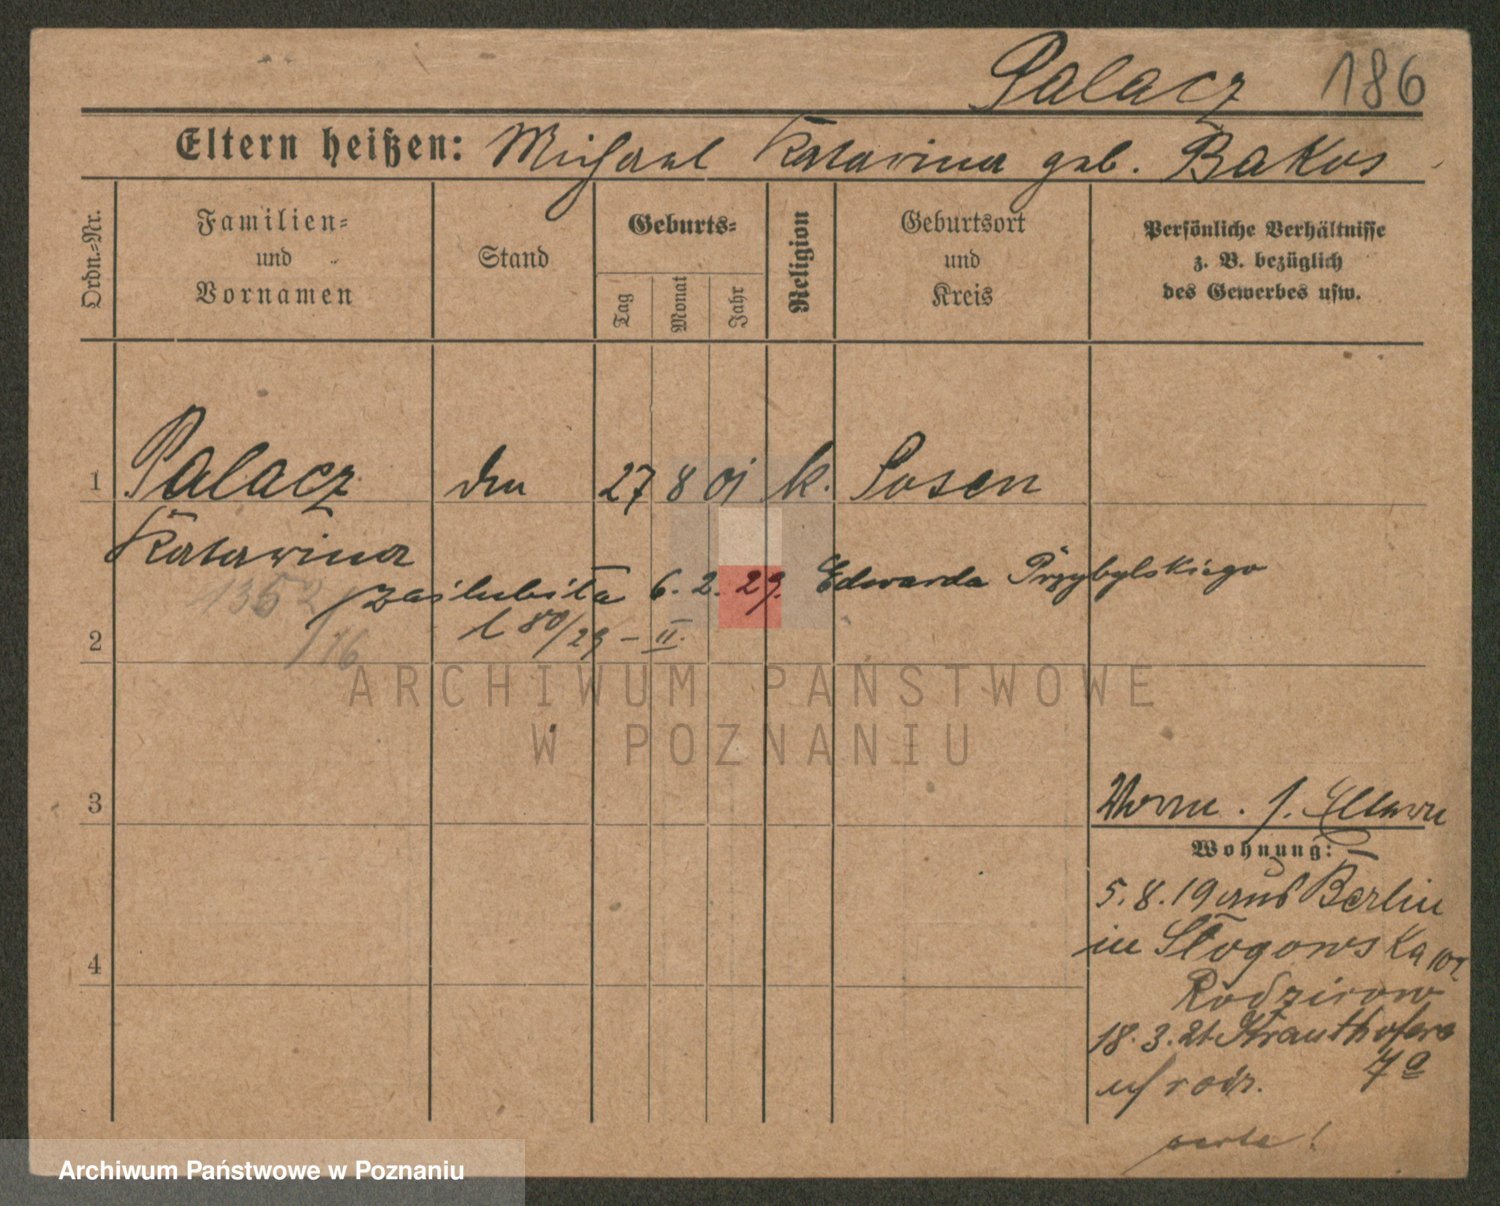 Palacz 186
Eltern heißen: Michael Katarina geb. Bakos
Ordn.-Nr.
Familien-
und
Vornamen
Stand
Geburts-
Tag
Monat
Jahr
Religion
Geburtsort
und
Kreis
Persönliche Verhältnisse
z. B. bezüglich
des Gewerbes usw.
1 Palacz 27 8 01 k. Posen
Katarina
1352
/16
zaślubiła 6. 2. 29. Edwarda Przybylskiego
80/29 – II.
2
3
4
s. Eltern
Wohnung:
5.8.19 aus Berlin
in Głogowska 107
18.3.21 Krauthofera
7a
u/ rodz.
ARCHIWUM PAŃSTWOWE
W POZNANIU
Archiwum Państwowe w Poznaniu